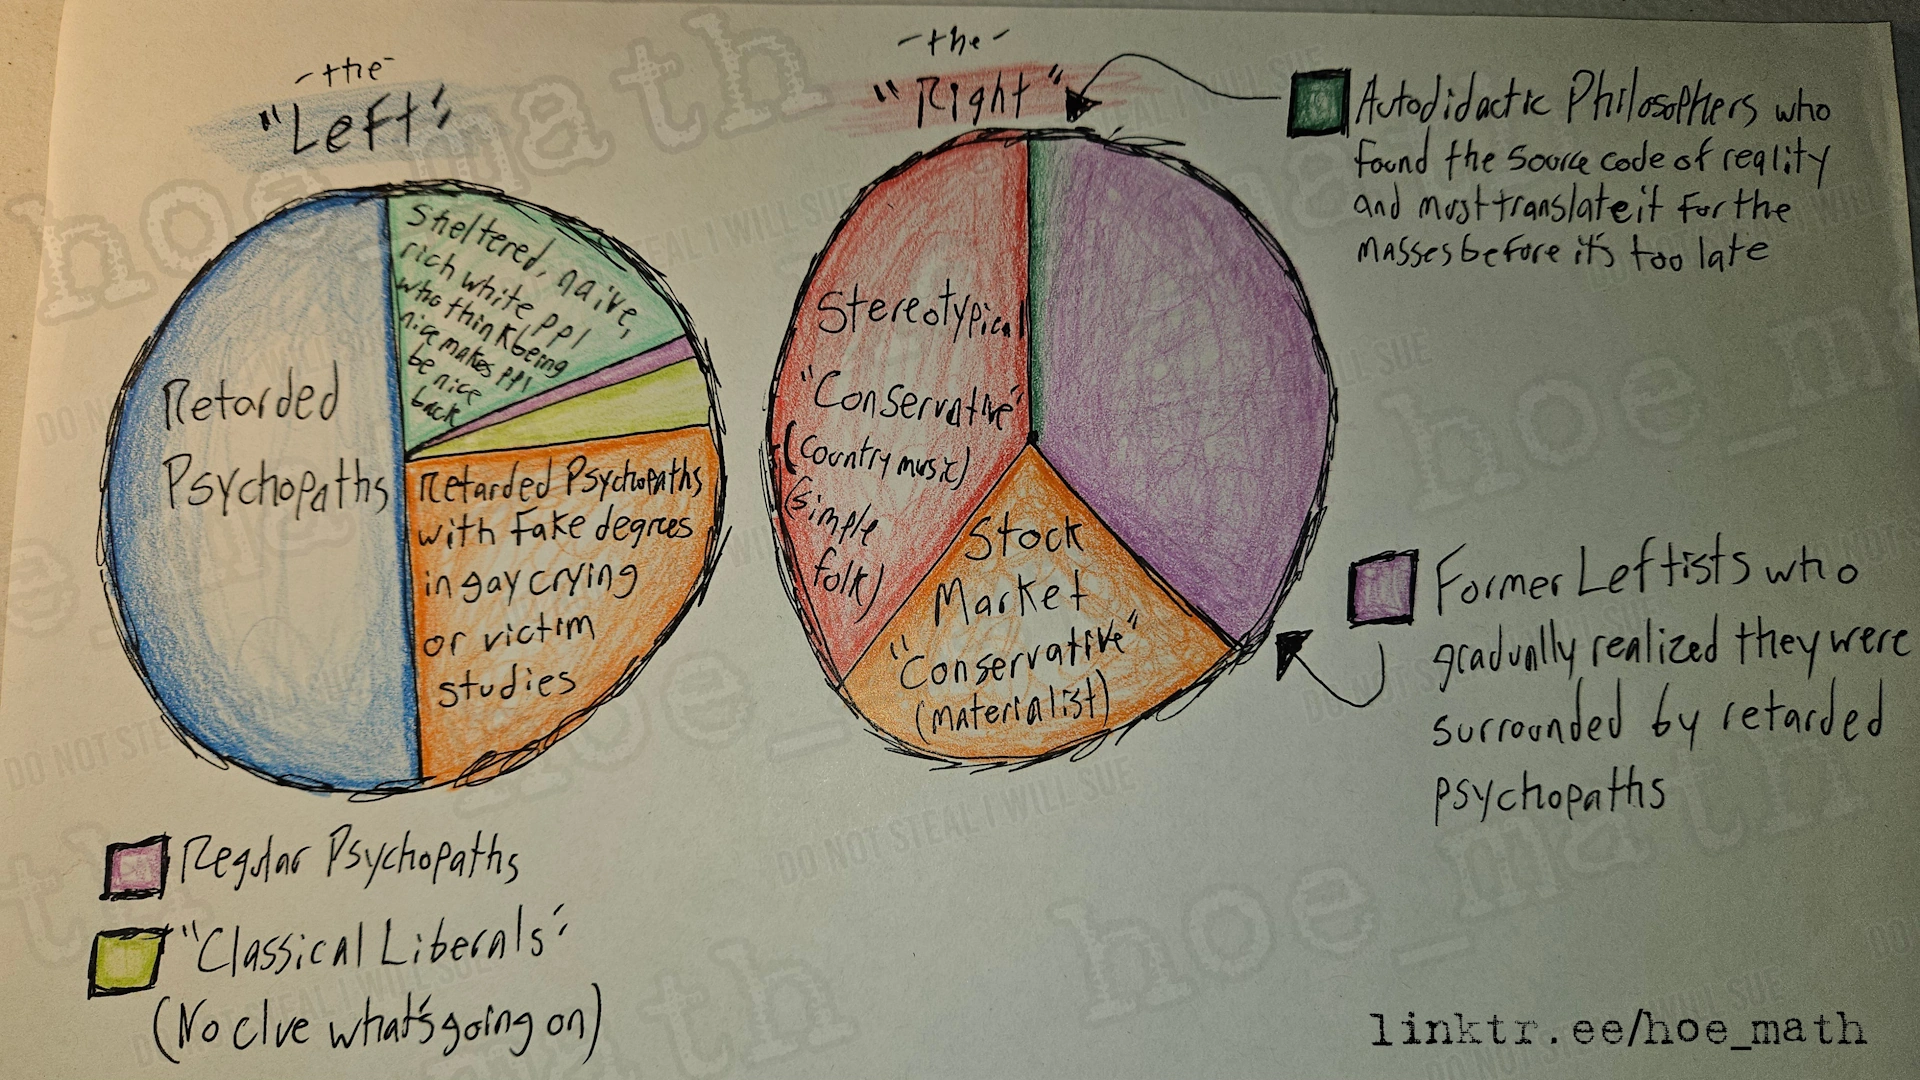 -the-
"Left"
Sheltered, naive,
rich white ppl
who think being
nice makes ppl
be nice
back
Retarded
Psychopaths
Retarded Psychopaths
with fake degrees
in gay crying
or victim
studies
Regular Psychopaths
"Classical Liberals"
(No clue what's going on)
-the-
"Right"
Stereotypical
"Conservative"
(country music)
(simple
folk)
Stock
Market
"Conservative"
(materialist)
Autodidactic Philosophers who
found the source code of reality
and must translate it for the
masses before it's too late
Former Leftists who
gradually realized they were
surrounded by retarded
psychopaths
linktr.ee/hoe_math
hoe_math
DO NOT STEAL I WILL SUE